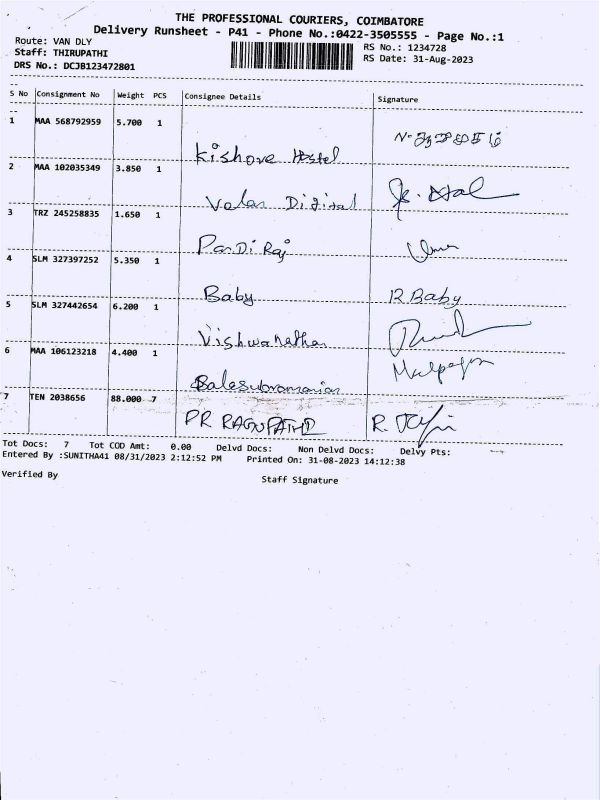 THE PROFESSIONAL COURIERS, COIMBATORE
Delivery Runsheet - P41 - Phone No.:0422-3505555 - Page No.:1
Route: VAN DLY
RS No.: 1234728
Staff: THIRUPATHI
RS Date: 31-Aug-2023
DRS No.: DCJB123472801
S No Consignment No Weight PCS Consignee Details Signature
1 MAA 568792959 5.700 1
Kishore Hostel
2 MAA 102035349 3.850 1
Velan Digital
3 TRZ 245258835 1.650 1
PanDi Raj
4 SLM 327397252 5.350 1
Baby R Baby
5 SLM 327442654 6.200 1
Vishwanathan
6 MAA 106123218 4.400 1
Balesubramanian
7 TEN 2038656 88.000 7
PR RAGUPATHI
Tot Docs: 7 Tot COD Amt: 0.00 Delvd Docs: Non Delvd Docs: Delvy Pts:
Entered By :SUNITHA41 08/31/2023 2:12:52 PM Printed On: 31-08-2023 14:12:38
Verified By
Staff Signature